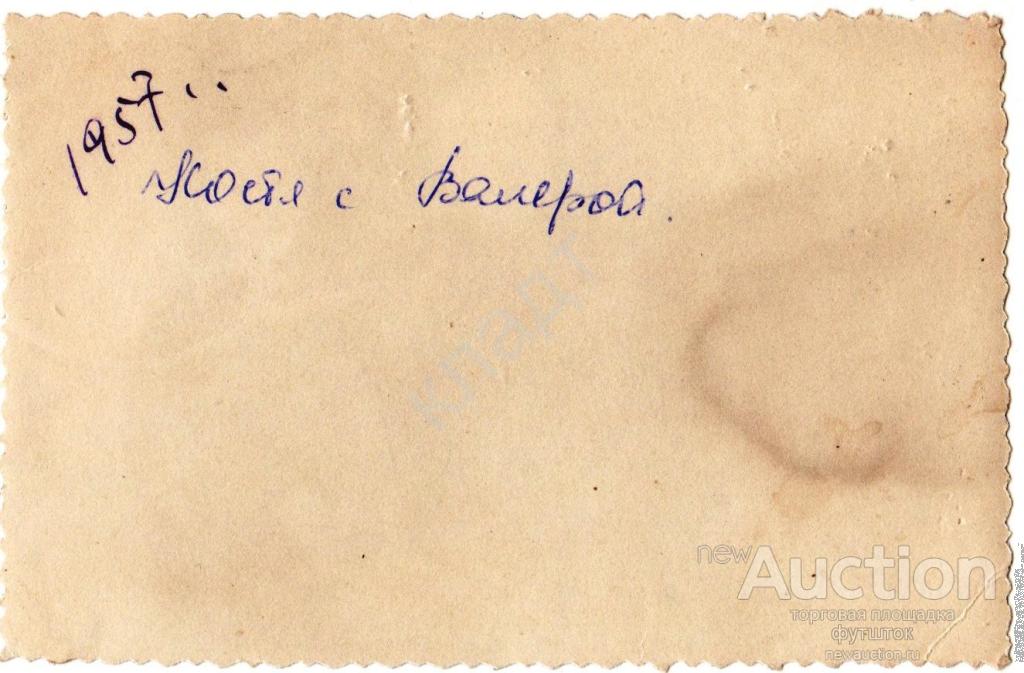 1957..
Костя с Валерой.
кладт
newAuction
торговая площадка
футшток
newauction.ru